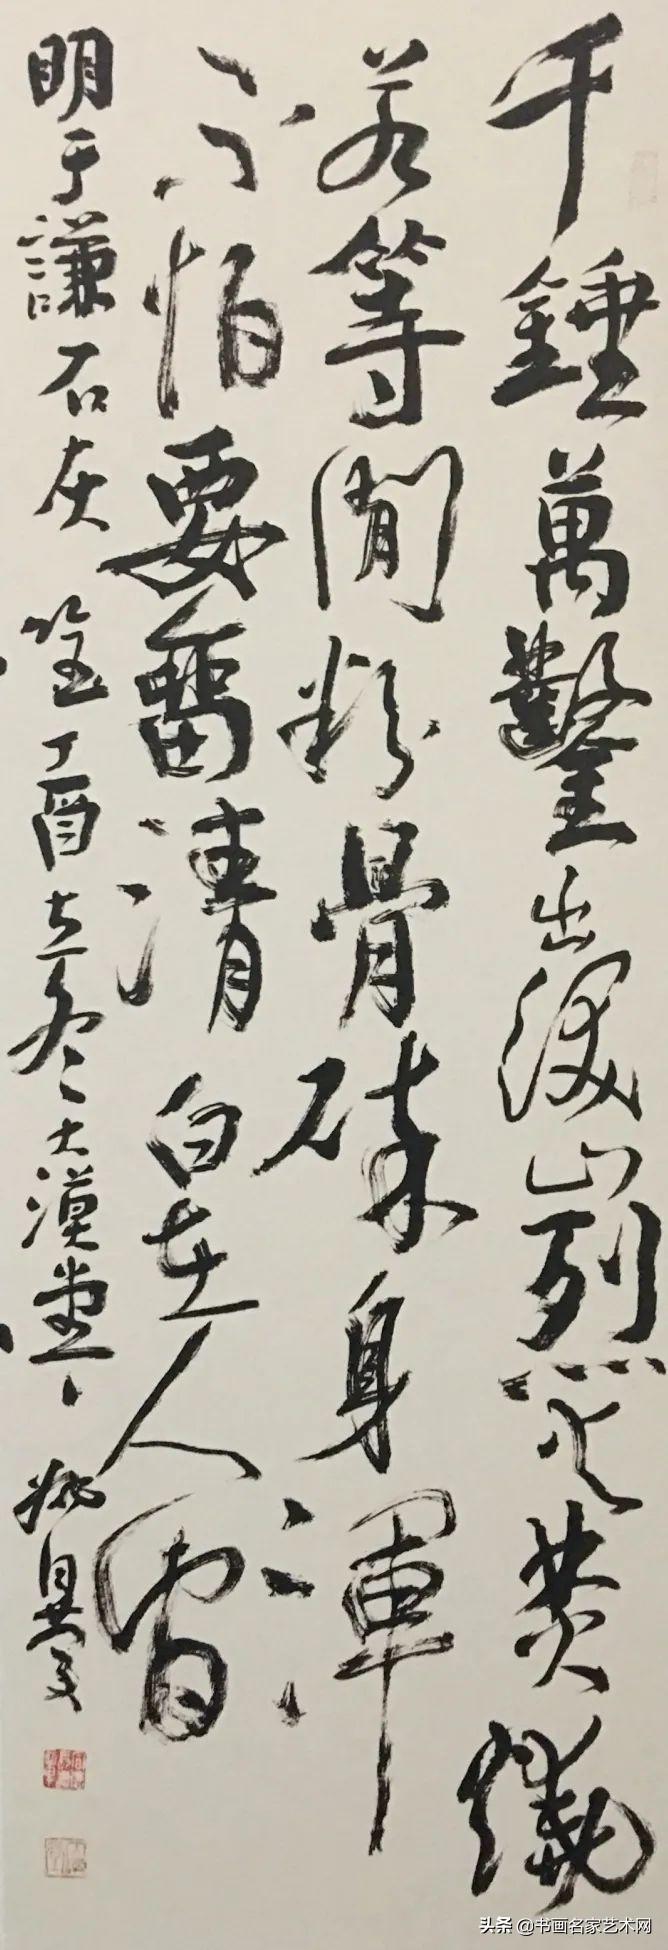 千錘萬鑿出深山烈火焚燒
若等閒粉骨碎身渾
不怕要畱清白在人間
明于謙石灰唫丁酉立冬大漠堂
头条 @书画名家艺术网